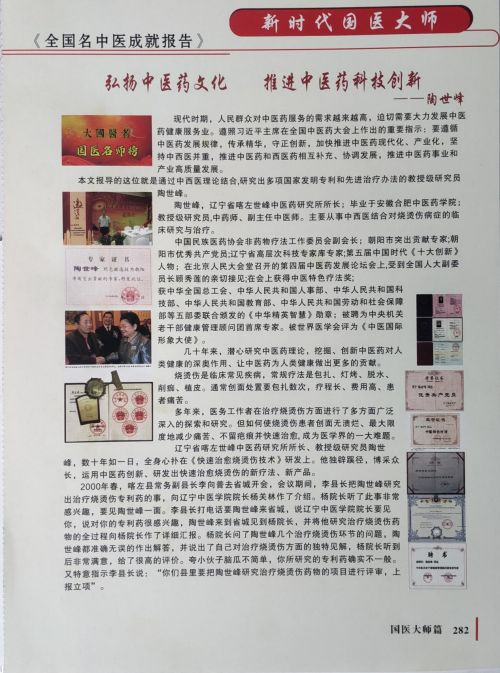 新时代国医大师
《全国名中医成就报告》
弘扬中医药文化 推进中医药科技创新
——陶世峰
现代时期，人民群众对中医药服务的需求越来越高，迫切需要大力发展中医
药健康服务业。遵照习近平主席在全国中医药大会上作出的重要指示：要遵循
中医药发展规律，传承精华，守正创新，加快推进中医药现代化、产业化，坚
持中西医并重，推进中医药和西医药相互补充、协调发展，推进中医药事业和
产业高质量发展。
本文报导的这位就是通过中西医理论结合,研究出多项国家发明专利和先进治疗办法的教授级研究员
陶世峰。
陶世峰，辽宁省喀左世峰中医药研究所所长；毕业于安徽合肥中医药学院；
教授级研究员,中药师、副主任中医师。主要从事中西医结合对烧烫伤病症的临
床研究与治疗。
中国民族医药协会非药物疗法工作委员会副会长；朝阳市突出贡献专家;朝
阳市优秀共产党员;辽宁省高层次科技专家库专家;第五届中国时代《十大创新》
人物；在北京人民大会堂召开的第四届中医药发展论坛会上,受到全国人大副委
员长顾秀莲的亲切接见;在会上获得中医特色疗法奖;
获中华全国总工会、中华人民共和国人事部、中华人民共和国科
技部、中华人民共和国教育部、中华人民共和国劳动和社会保障
部等五部委联合颁发的《中华精英智慧》勋章；被聘为中央机关
老干部健康管理顾问团首席专家。被世界医学会评为《中医国际
形象大使》。
几十年来，潜心研究中医药理论，挖掘、创新中医药对人
类健康的深奥作用、让中医药为人类健康做出更多的贡献。
烧烫伤是临床常见疾病，常规疗法是包扎、灯烤、脱水、
削痂、植皮。通常创面处置要包扎数次，疗程长、费用高、患
者痛苦。
多年来，医务工作者在治疗烧烫伤方面进行了多方面广泛
深入的探索和研究。但如何使烧烫伤患者创面无溃烂、最大限
度地减少痛苦、不留疤痕并快速治愈,成为医学界的一大难题。
辽宁省喀左世峰中医药研究所所长、教授级研究员陶世
峰，数十年如一日，全身心扑在《快速治愈烧烫伤技术》研发上。他独辟蹊径，博采众
长，运用中医药创新、研发出快速治愈烧烫伤的新疗法、新产品。
2000年春，喀左县常务副县长李向普去省城开会，会议期间，李县长把陶世峰研究
出治疗烧烫伤专利药的事，向辽宁中医学院院长杨关林作了介绍。杨院长听了此事非常
感兴趣，要见陶世峰一面。李县长打电话要陶世峰来省城，说辽宁中医学院院长要见
你，说对你的专利药很感兴趣，陶世峰来到省城见到杨院长，并将他研究治疗烧烫伤药
物的全过程向杨院长作了详细汇报。杨院长问了陶世峰几个治疗烧烫伤环节的问题，陶
世峰都准确无误的作出解答，并说出了自己对治疗烧烫伤方面的独特见解，杨院长听到
后非常满意，给了很高的评价。夸小伙子脑瓜不简单，你所研究的专利药确实不一般。
又特意指示李县长说：“你们县里要把陶世峰研究治疗烧烫伤药物的项目进行评审，上
报立项”。
大國醫者
国医名师榜
专家证书
陶世峰
荣誉证书
优秀共产党员
聘书
国医大师篇 282